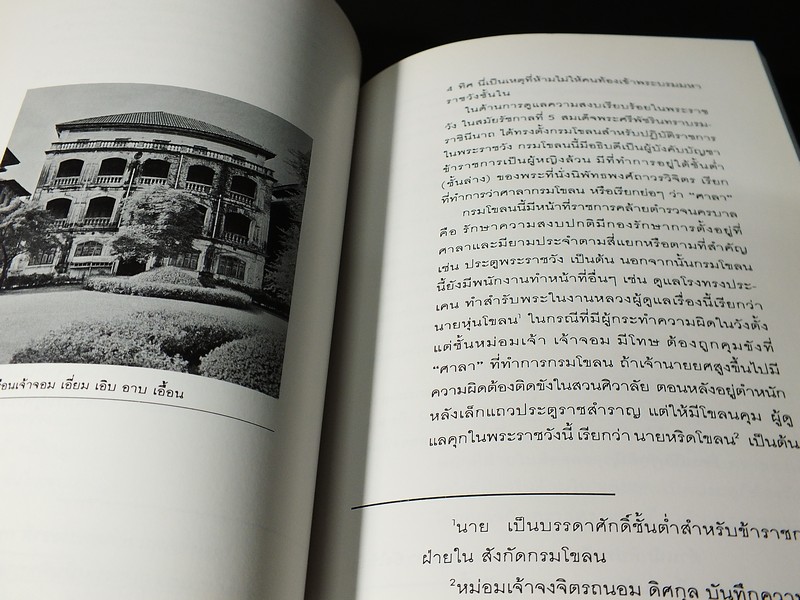 เรือนเจ้าจอม เอี่ยม เอิบ อาบ เอื้อน
๔ ทิศ นี่เป็นเหตุที่ห้ามไม่ให้คนท้องเข้าพระบรมมหา
ราชวังชั้นใน
ในด้านการดูแลความสงบเรียบร้อยในพระราช
วัง ในสมัยรัชกาลที่ 5 สมเด็จพระศรีพัชรินทราบรม
ราชินีนาถ ได้ทรงตั้งกรมโขลนสำหรับปฏิบัติราชการ
ในพระราชวัง กรมโขลนนี้มีอธิบดีเป็นผู้บังคับบัญชา
ข้าราชการเป็นผู้หญิงล้วน มีที่ทำการอยู่ใต้ชั้นต่ำ
(ชั้นล่าง) ของพระที่นั่งนิพัทธพงศ์ถาวรวิจิตร เรียก
ที่ทำการว่าศาลากรมโขลน หรือเรียกย่อๆ ว่า “ศาลา”
กรมโขลนนี้มีหน้าที่ราชการคล้ายตำรวจนครบาล
คือ รักษาความสงบปกติมีกองรักษาการตั้งอยู่ที่
ศาลาและมียามประจำตามสี่แยกหรือตามที่สำคัญ
เช่น ประตูพระราชวัง เป็นต้น นอกจากนั้นกรมโขลน
นี้ยังมีพนักงานทำหน้าที่อื่นๆ เช่น ดูแลโรงทรงประ-
เคน ทำสำรับพระในงานหลวงผู้ดูแลเรื่องนี้เรียกว่า
นายหุ่นโขลน¹ ในกรณีที่มีผู้กระทำความผิดในวังตั้ง
แต่ชั้นหม่อมเจ้า เจ้าจอม มีโทษ ต้องถูกคุมขังที่
“ศาลา” ที่ทำการกรมโขลน ถ้าเจ้านายยศสูงขึ้นไปมี
ความผิดต้องติดขังในสวนศิวาลัย ตอนหลังอยู่ตำหนัก
หลังเล็กแถวประตูราชสำราญ แต่ให้มีโขลนคุม ผู้ดู
แลคุกในพระราชวังนี้ เรียกว่า นายหริดโขลน² เป็นต้น
¹นาย เป็นบรรดาศักดิ์ชั้นต่ำสำหรับข้าราชก
ฝ่ายใน สังกัดกรมโขลน
²หม่อมเจ้าจงจิตรถนอม ดิศกุล บันทึกความ